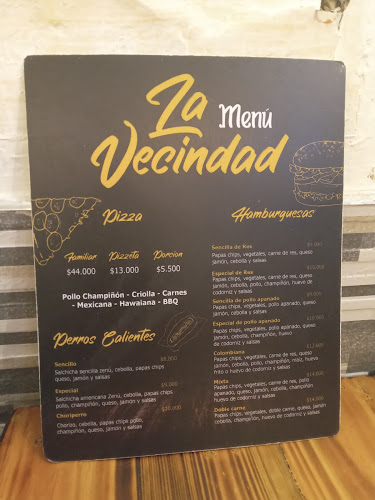 La
Menú
Vecindad
Pizza
Familiar Pizzeta Porcion
$44.000 $13.000 $5.500
Pollo Champiñón - Criolla - Carnes
- Mexicana - Hawaiana - BBQ
Perros Calientes
Sencillo $8.000
Salchicha sencilla zenú, cebolla, papas chips
queso, jamón y salsas
Especial $9.000
Salchicha americana Zenú, cebolla, papas chips
pollo, champiñón, queso, jamón y salsas
Choriperro
Chorizo, cebolla, papas chips pollo,
champiñón, queso, jamón y salsas
Hamburguesas
Sencilla de Res
Papas chips, vegetales, carne de res, queso
jamón, cebolla y salsas
Especial de Res
Papas chips, vegetales, carne de res, queso
jamón, cebolla, pollo, champiñón, huevo de
codorniz y salsas
Sencilla de pollo apanado
Papas chips, vegetales, pollo apanado, queso
jamón, cebolla y salsas
Especial de pollo apanado
Papas chips, vegetales, pollo apanado, queso
jamón, cebolla, champiñón, huevo
de codorniz y salsas
Colombiana
Papas chips, vegetales, carne de res, queso
jamón, cebolla, pollo, champiñón, maíz, huevo
frito o huevo de codorniz y salsas
Mixta
Papas chips, vegetales, carne de res, pollo
apanado, queso, jamón, cebolla, champiñón
huevo de codorniz y salsas
Doble carne
Papas chips, vegetales, doble carne, queso, jamón
cebolla, champiñón, huevo de codorniz y salsas